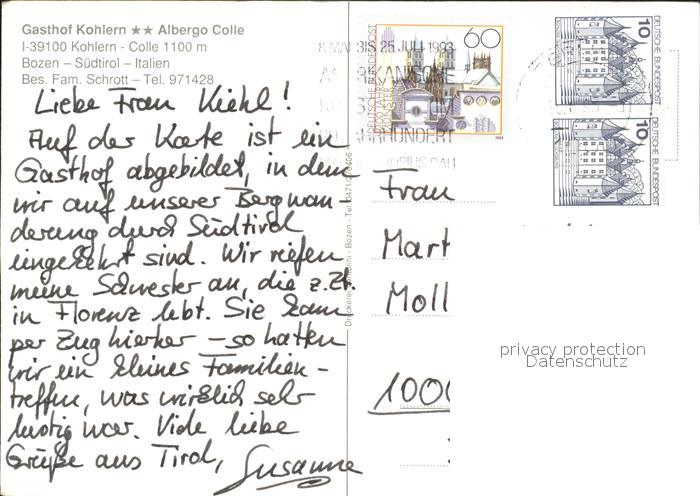 Gasthof Kohlern ★★ Albergo Colle
I-39100 Kohlern - Colle 1100 m
Bozen – Südtirol – Italien
Bes. Fam. Schrott – Tel. 971428
Liebe Frau Kiehl!
Auf der Karte ist ein
Gasthof abgebildet, in dem
wir auf unserer Bergwan-
derung durch Südtirol
eingekehrt sind. Wir riefen
meine Schwester an, die z.Zt.
in Florenz lebt. Sie kam
per Zug hierher – so hatten
wir ein kleines Familien-
treffen, was wirklich sehr
lustig war. Viele liebe
Grüße aus Tirol,
Susanne
8. MAI BIS 25. JULI 1993
AMERIKANISCHE
JAHRHUNDERT
60
DEUTSCHE BUNDESPOST
10
DEUTSCHE BUNDESPOST
10
DEUTSCHE BUNDESPOST
Frau
Mart
Moll
100
privacy protection
Datenschutz